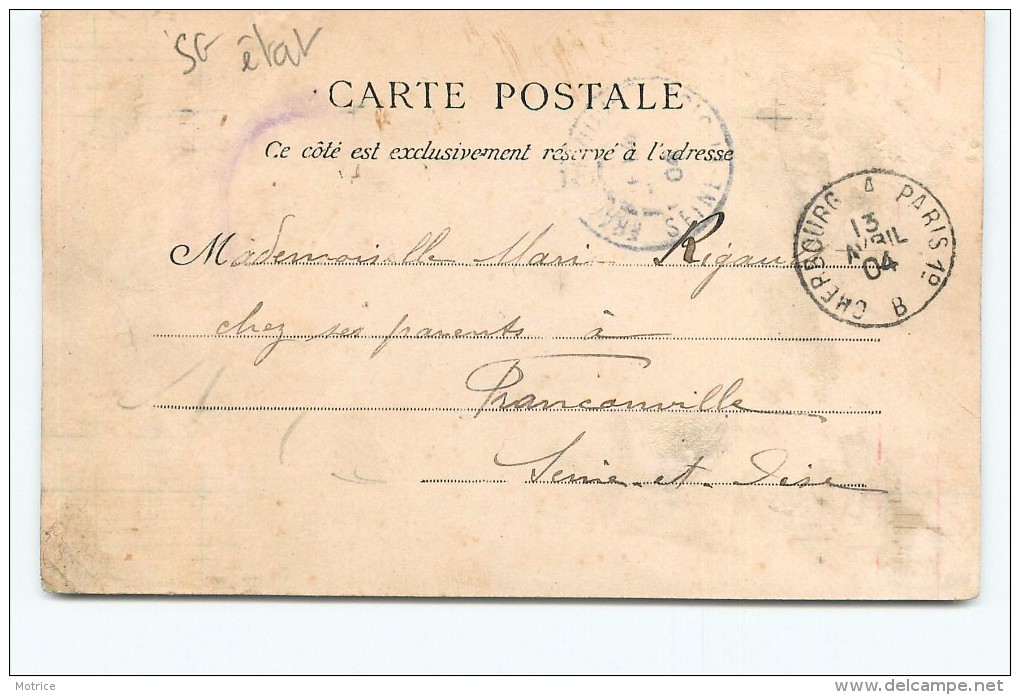 SG état
CARTE POSTALE
Ce côté est exclusivement réservé à l'adresse
SEINE
04
CHERBOURG A PARIS 1º
13
AVRIL
04
B
Mademoiselle Marie Rigaud
chez ses parents à
Franconville
Seine-et-Oise
Matrice
www.delcampe.net